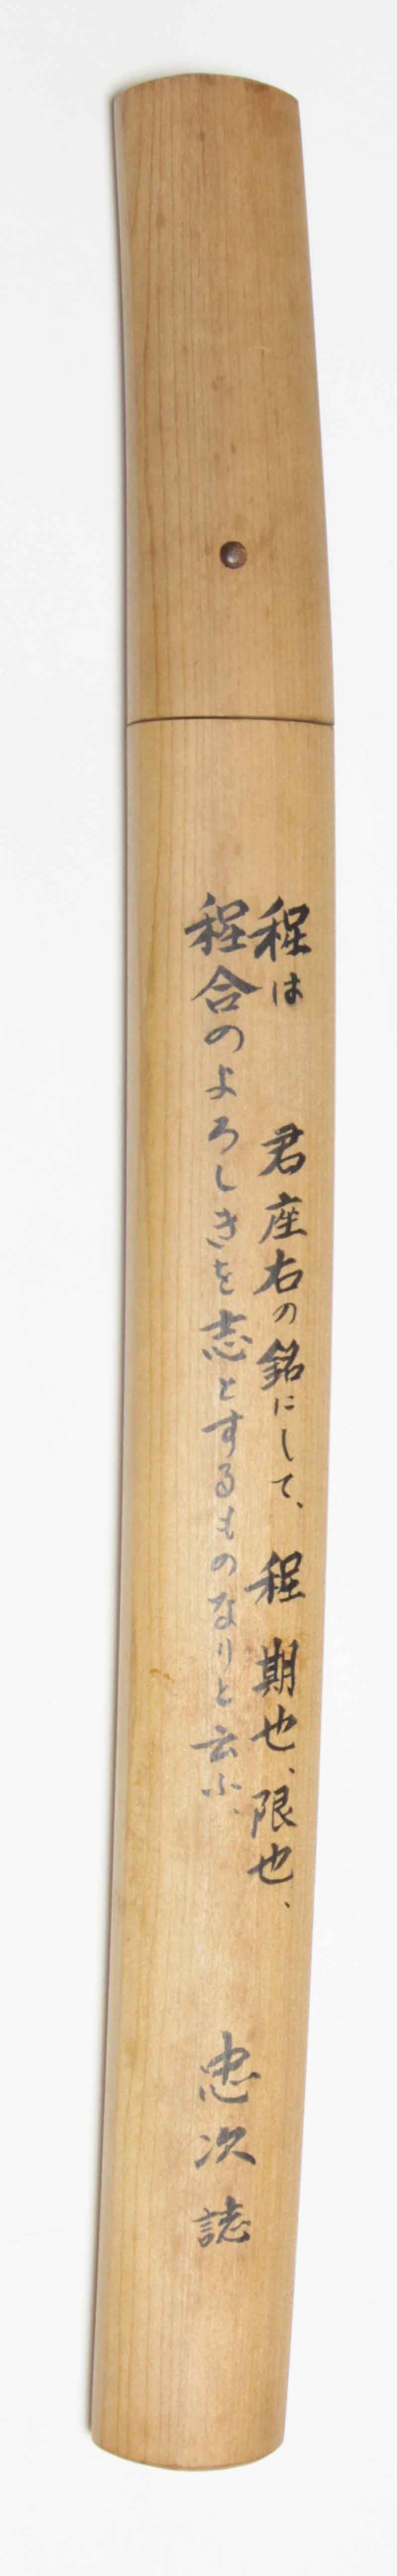 程は　君座右の銘にして、程　期也、限也、
程合のよろしきを志とするものなりと云ふ、
忠次誌